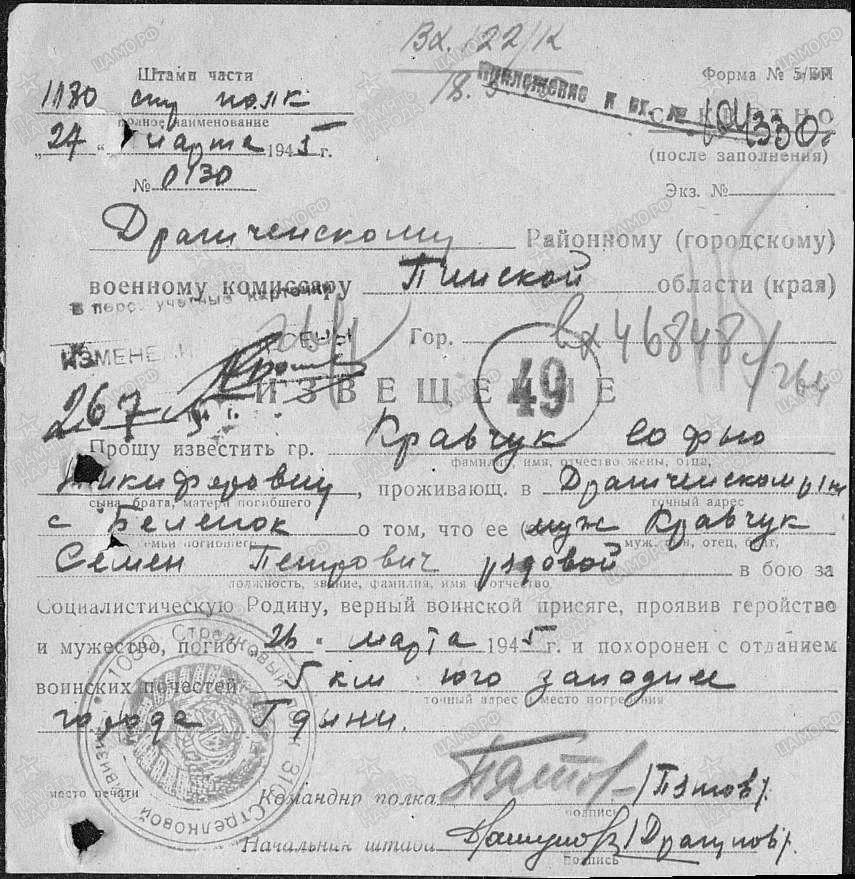 Вх. 122/К
Штамп части
Форма № 5/БП
1180 стр полк
Приложение к вх. №
полное наименование
СЕКРЕТНО
"27" марта 1945 г.
(после заполнения)
№ 0130
Экз. №
Драгиченскому Районному (городскому)
военному комиссару Пинской области (края)
в перс. учетные карточки
Гор.
вх 46848
ИЗМЕНЕНИ
49
ИЗВЕЩЕНИЕ
267
Прошу известить гр. Кравчук Софью
фамилия, имя, отчество жены, отца,
Никифоровну, проживающ. в Драгиченском
сына, брата, матери погибшего
точный адрес
с о том, что ее (муж Кравчук
семьи погибшего
муж, сын, отец, брат,
Семен Петрович рядовой в бою за
должность, звание, фамилия, имя и отчество
Социалистическую Родину, верный воинской присяге, проявив геройство
и мужество, погиб 26 марта 1945 г. и похоронен с отданием
воинских почестей 5 км юго западнее
точный адрес и место погребения
города Гдыни.
Стрелковый
Стрелковой дивизии
место печати
Командир полка Пятов /Пятов/.
подпись
Начальник штаба Драгунов /Драгунов/.
подпись